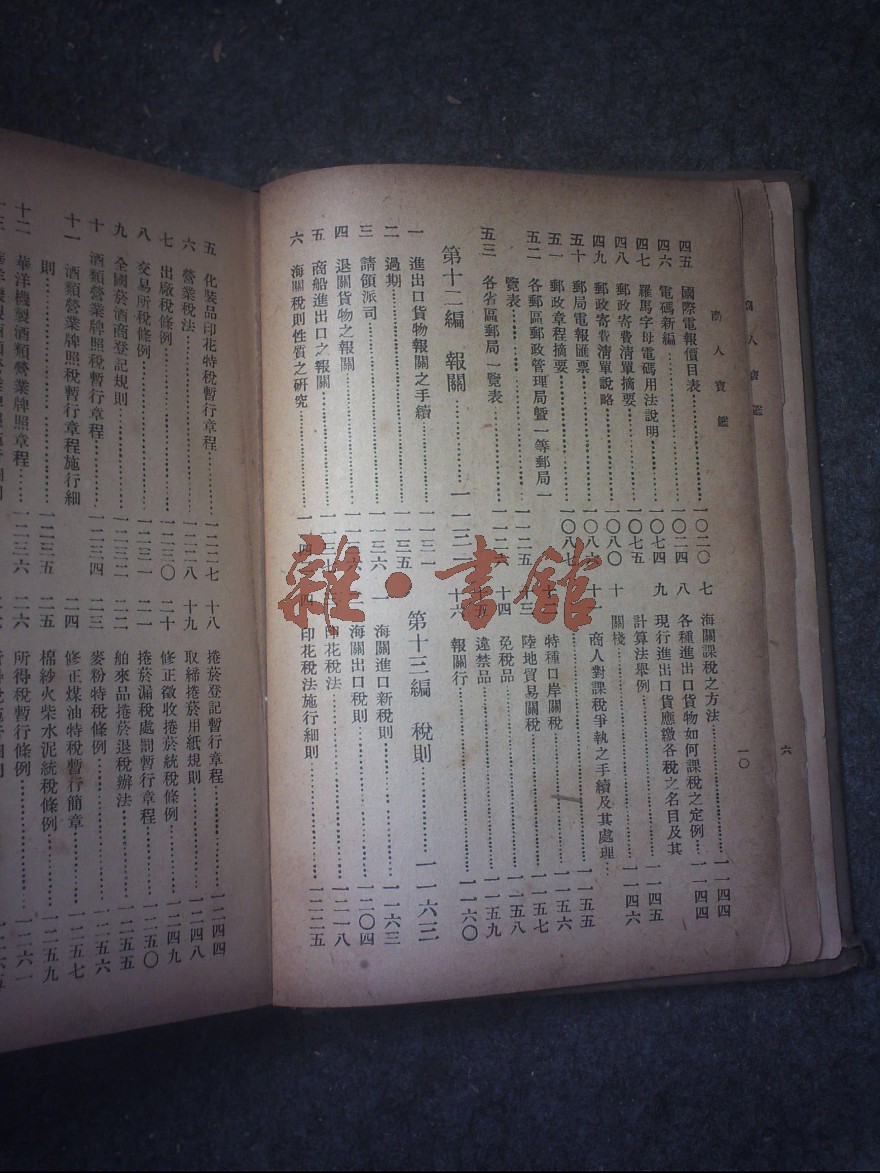 商人寶鑑
商人寶鑑
六
一〇
四五 國際電報價目表……一〇二〇
四六 電碼新編……一〇二四
四七 羅馬字母電碼用法說明……一〇七四
四八 郵政寄費清單摘要……一〇七五
四九 郵政寄費清單說略……一〇八〇
五十 郵局電報匯票……一〇八六
五一 郵政章程摘要……一〇八七
五二 各郵區郵政管理局暨一等郵局一
覽表……一一二五
五三 各省區郵局一覽表……一一二六
第十二編 報關……一一三一
一 進出口貨物報關之手續……一一三一
二 過期……一一三五
三 請領派司……一一三六
四 退關貨物之報關……一一三六
五 商船進出口之報關……一一三七
六 海關稅則性質之研究……一一四
七 海關課稅之方法……一一四四
八 各種進出口貨物如何課稅之定例……一一四四
九 現行進出口貨應繳各稅之名目及其
計算法舉例……一一四五
十 關棧……一一四六
十一 商人對課稅爭執之手續及其處理……
……一一五五
十二 特種口岸關稅……一一五六
十三 陸地貿易關稅……一一五七
十四 免稅品……一一五八
十五 違禁品……一一五九
十六 報關行……一一六〇
第十三編 稅則……一一六三
一 海關進口新稅則……一一六三
二 海關出口稅則……一二〇四
三 印花稅法……一二一八
四 印花稅法施行細則……一二二五
五 化裝品印花特稅暫行章程……一二二七
六 營業稅法……一二二八
七 出廠稅條例……一二三〇
八 交易所稅條例……一二三一
九 全國菸酒商登記規則……一二三二
十 酒類營業牌照稅暫行章程……一二三四
十一 酒類營業牌照稅暫行章程施行細
則……一二三五
十二 華洋機製酒類營業牌照章程……一二三六
十八 捲菸登記暫行章程……一二四四
十九 取締捲菸用紙規則……一二四八
二十 修正徵收捲菸統稅條例……一二四九
二一 捲菸漏稅處罰暫行章程……一二五〇
二二 舶來品捲菸退稅辦法……一二五五
二三 麥粉特稅條例……一二五六
二四 修正煤油特稅暫行簡章……一二五七
二五 棉紗火柴水泥統稅條例……一二五九
二六 所得稅暫行條例……一二六一
雜·書館